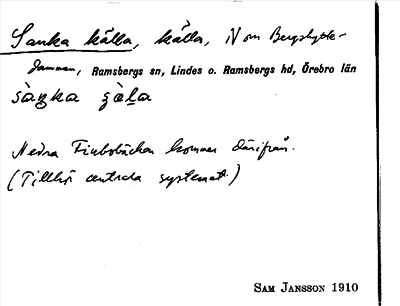 Sanka källa, källa, N om Bergshytte-
dammen, Ramsbergs sn, Lindes o. Ramsbergs hd, Örebro län
sàŋka çàḷa
Nedra Finbobäcken kommer därifrån.
(Tillhör centrala systemet.)
SAM JANSSON 1910